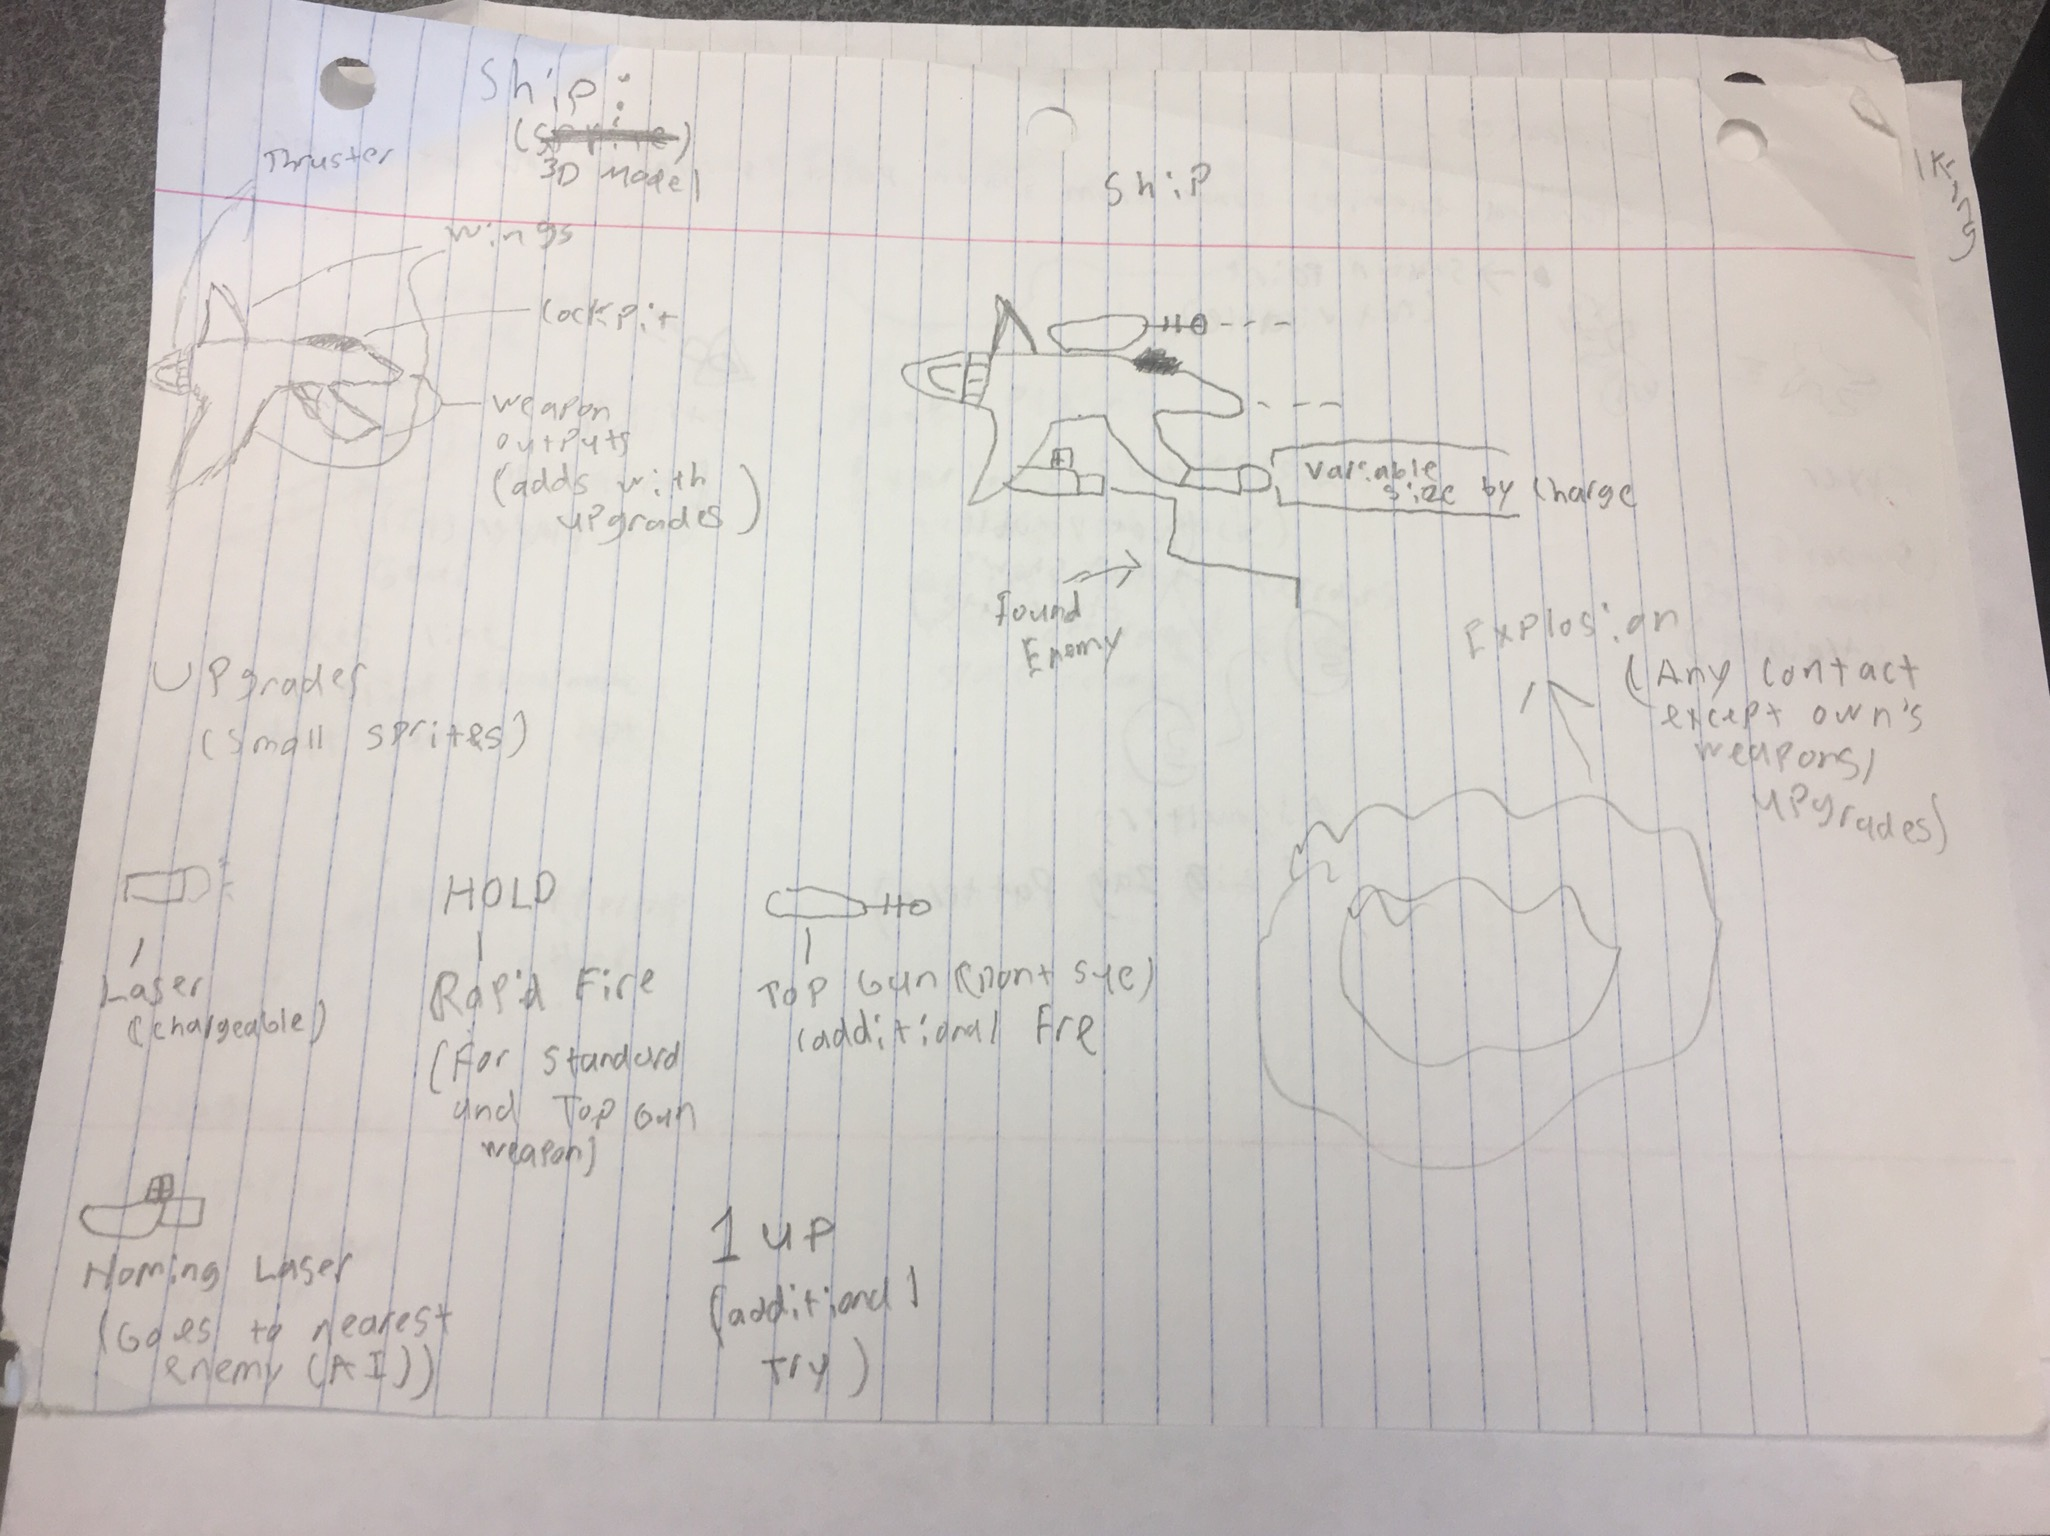 Ship:
(sprite)
3D Model
Thruster
wings
cockpit
weapon
outputs
(adds with
upgrades)
Ship
variable
size by charge
Found
Enemy
Explosion
(Any contact
except own's
weapons/
upgrades)
Upgrades
(small sprites)
Laser
(chargeable)
HOLD
Rapid Fire
(For standard
and Top Gun
weapon)
Top Gun
(additional Fre
Homing Laser
(Goes to nearest
enemy (AI))
1 up
(additional
try)